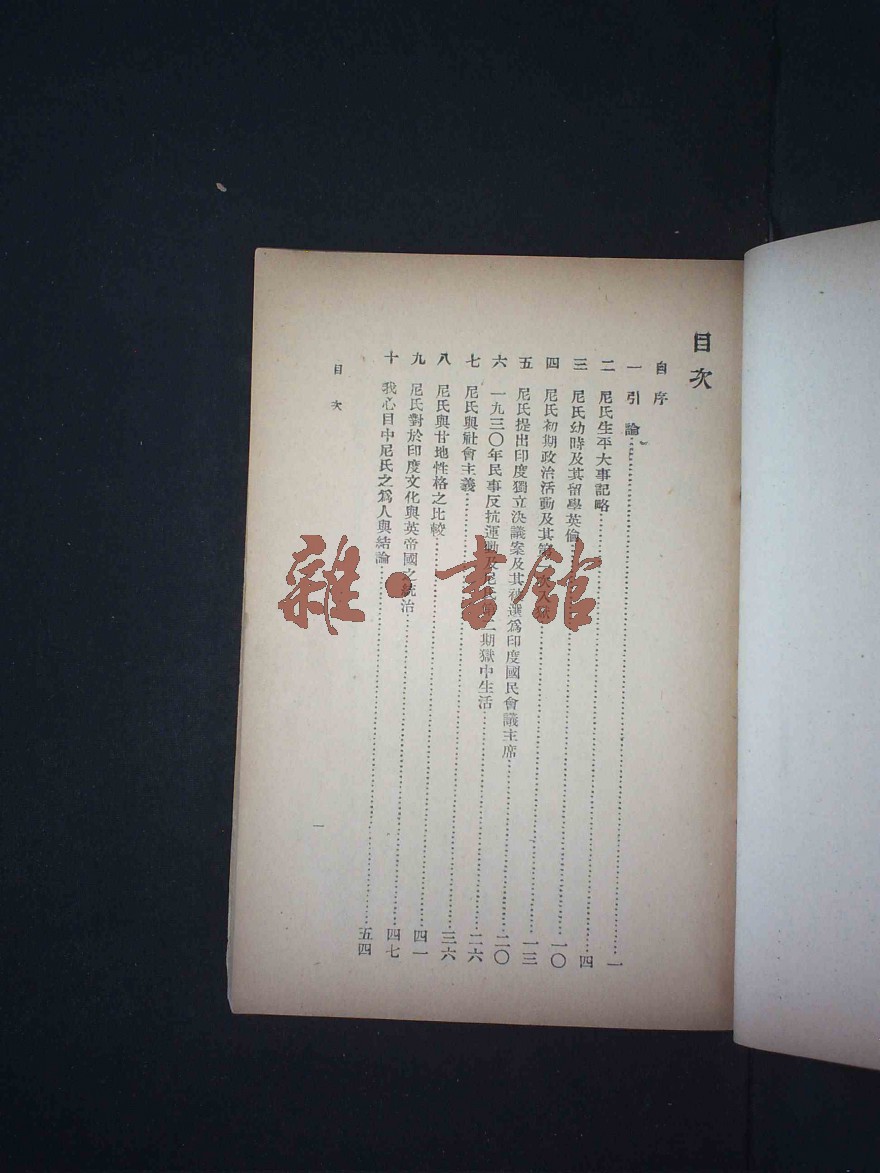 目次
自序
一 引論 一
二 尼氏生平大事記略 四
三 尼氏幼時及其留學英倫 一〇
四 尼氏初期政治活動及其第 一三
五 尼氏提出印度獨立決議案及其被選爲印度國民會議主席 二〇
六 一九三〇年民事反抗運動及尼氏 二期獄中生活 二六
七 尼氏與社會主義 三六
八 尼氏與甘地性格之比較 四一
九 尼氏對於印度文化與英帝國之統治 四七
十 我心目中尼氏之爲人與結論 五四
目次
一
雜·書館